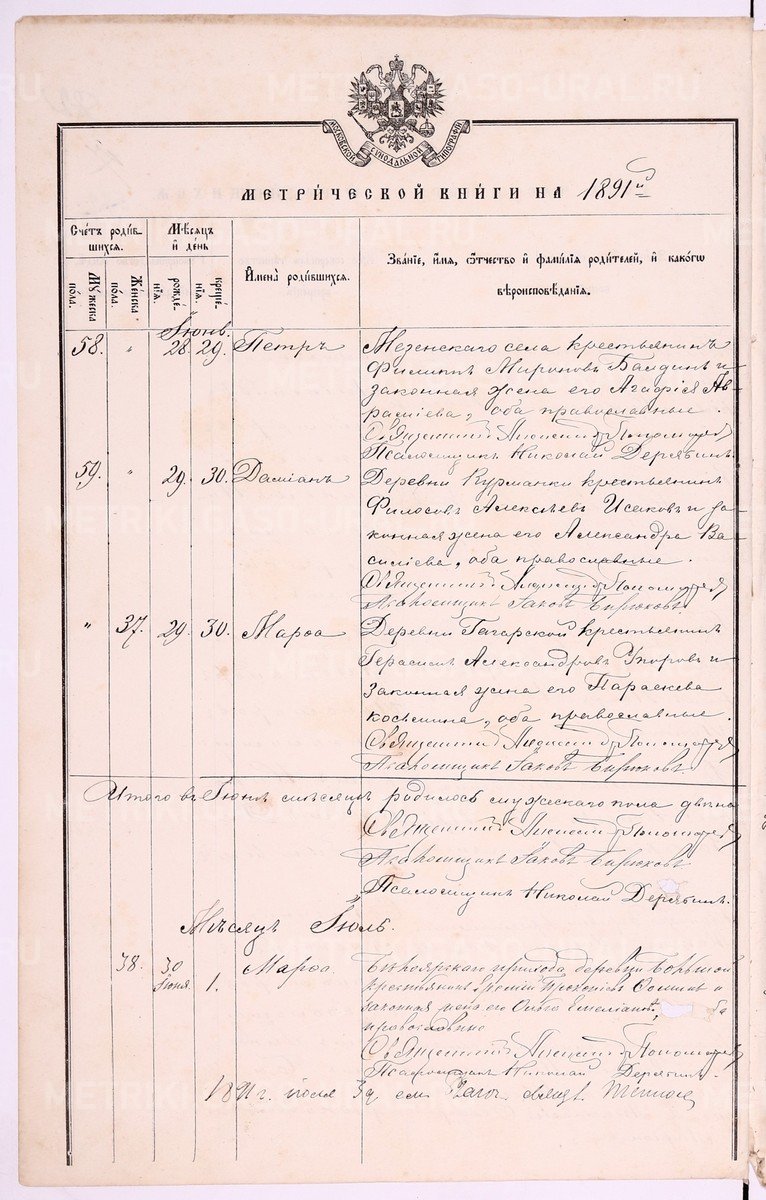 МОСКОВСКОЙ СѴНОДАЛЬНОЙ ТИПОГРАФІИ
МЕТРИ́ЧЕСКОЙ КНИ́ГИ НА 1891й
Сче́тъ роди́вшихся.
Мѣ́сяцъ и де́нь
Имена̀ роди́вшихся.
Зва́ніе, и́мя, ѻ҆́тчество и фами́лія роди́телей, и како́гѡ
вѣроисповѣ́данія.
Мꙋ́жеска по́ла.
Же́нска по́ла.
рожде́нія.
креще́нія.
Іюнь.
58. " 28. 29. Петръ
Мезенскаго села крестьянинъ
Филиппъ Мироновъ Балдинъ и
законная жена его Агафія Ав-
раміева, оба православные.
Священникъ Пономаревъ
Псаломщикъ Николай Дерябинъ.
59. " 29. 30. Даміанъ
Деревни Курманки крестьянинъ
Филосовъ Алексѣевъ Исаковъ и за-
конная жена его Александра Ва-
силіева, оба православные.
Священникъ Пономаревъ
Псаломщикъ Іаковъ Бирюковъ
" 37. 29. 30. Марѳа
Деревни Гагарской крестьянинъ
Герасимъ Александровъ Упоровъ и
законная жена его Параскева
Косьмина, оба православные.
Священникъ Пономаревъ
Псаломщикъ Іаковъ Бирюковъ
Итого въ Іюнѣ мѣсяцѣ родилось мужескаго пола
Священникъ Пономаревъ
Псаломщикъ Іаковъ Бирюковъ
Псаломщикъ Николай Дерябинъ.
Мѣсяцъ Іюль.
38. 30 Іюня 1. Марѳа.
Бѣлоярскаго прихода деревни
крестьянинъ Прокопіевъ Ѳоминъ и
законная жена его Ольга
православные
Священникъ Пономаревъ
Псаломщикъ Николай Дерябинъ.
1891 г. іюля